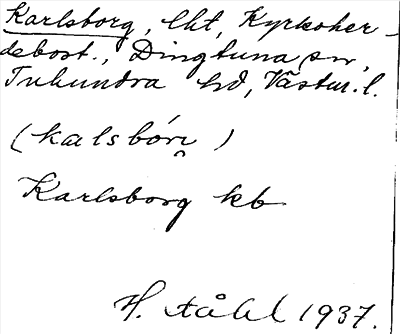 Karlsborg, lht, Kyrkoher-
debost., Dingtuna sn,
Tuhundra hd, Västm. l.
(kalsbórj)
Karlsborg kb
H. Ståhl 1937.